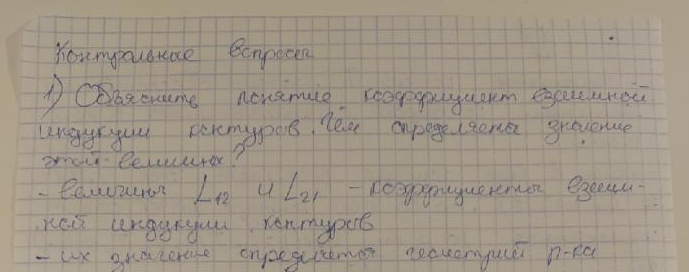 Контрольные вопросы
1) Объяснить понятие коэффициент взаимной
индукции контуров. Чем определяется значение
этой величины?
- величины L12 и L21 - коэффициенты взаим-
ной индукции контуров
- их значение определяется геометрией р-ка